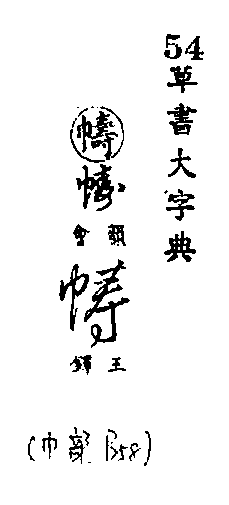 54
草書大字典
幬
幬
韻會
幬
王鐸
(巾部 P358)